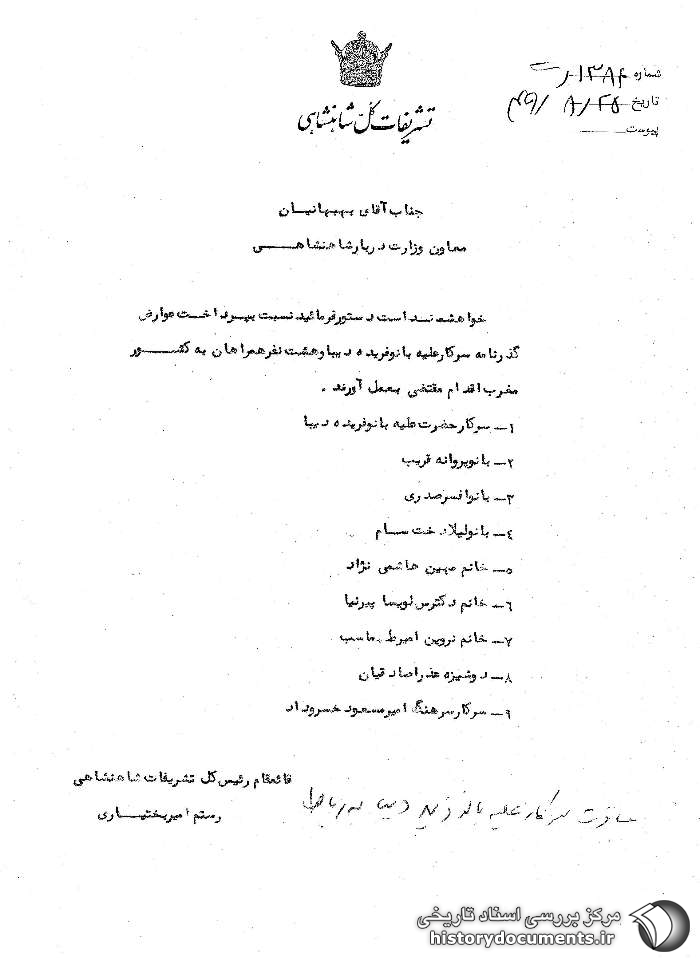 شماره ۱۳۸۴-
تاریخ ۴۹/ ۸/۲۵
پیوست
تشریفات کل شاهنشاهی
جناب آقای بهبهانیان
معاون وزارت دربار شاهنشاهی
خواهشمند است دستور فرمائید نسبت بپرداخت عوارض
گذرنامه سرکار علیه بانو فریده دیبا و هشت نفر همراهان به کشور
مغرب اقدام مقتضی بعمل آورند .
۱- سرکار حضرت علیه بانو فریده دیبا
۲- بانو پروانه قریب
۳- بانو افسر صدری
۴- بانو لیلا دخت سام
۵- خانم مهین هاشمی نژاد
۶- خانم دکتر س لویسا پیرنیا
۷- خانم نروین امیرط ماسب
۸- دوشیزه عذرا صادقیان
۹- سرکار سرهنگ امیر مسعود خسروداد
قائمقام رئیس کل تشریفات شاهنشاهی
رستم امیربختیاری
مسافرت سرکار علیه بانو فریده دیبا به رباط
مرکز بررسی اسناد تاریخی
historydocuments.ir